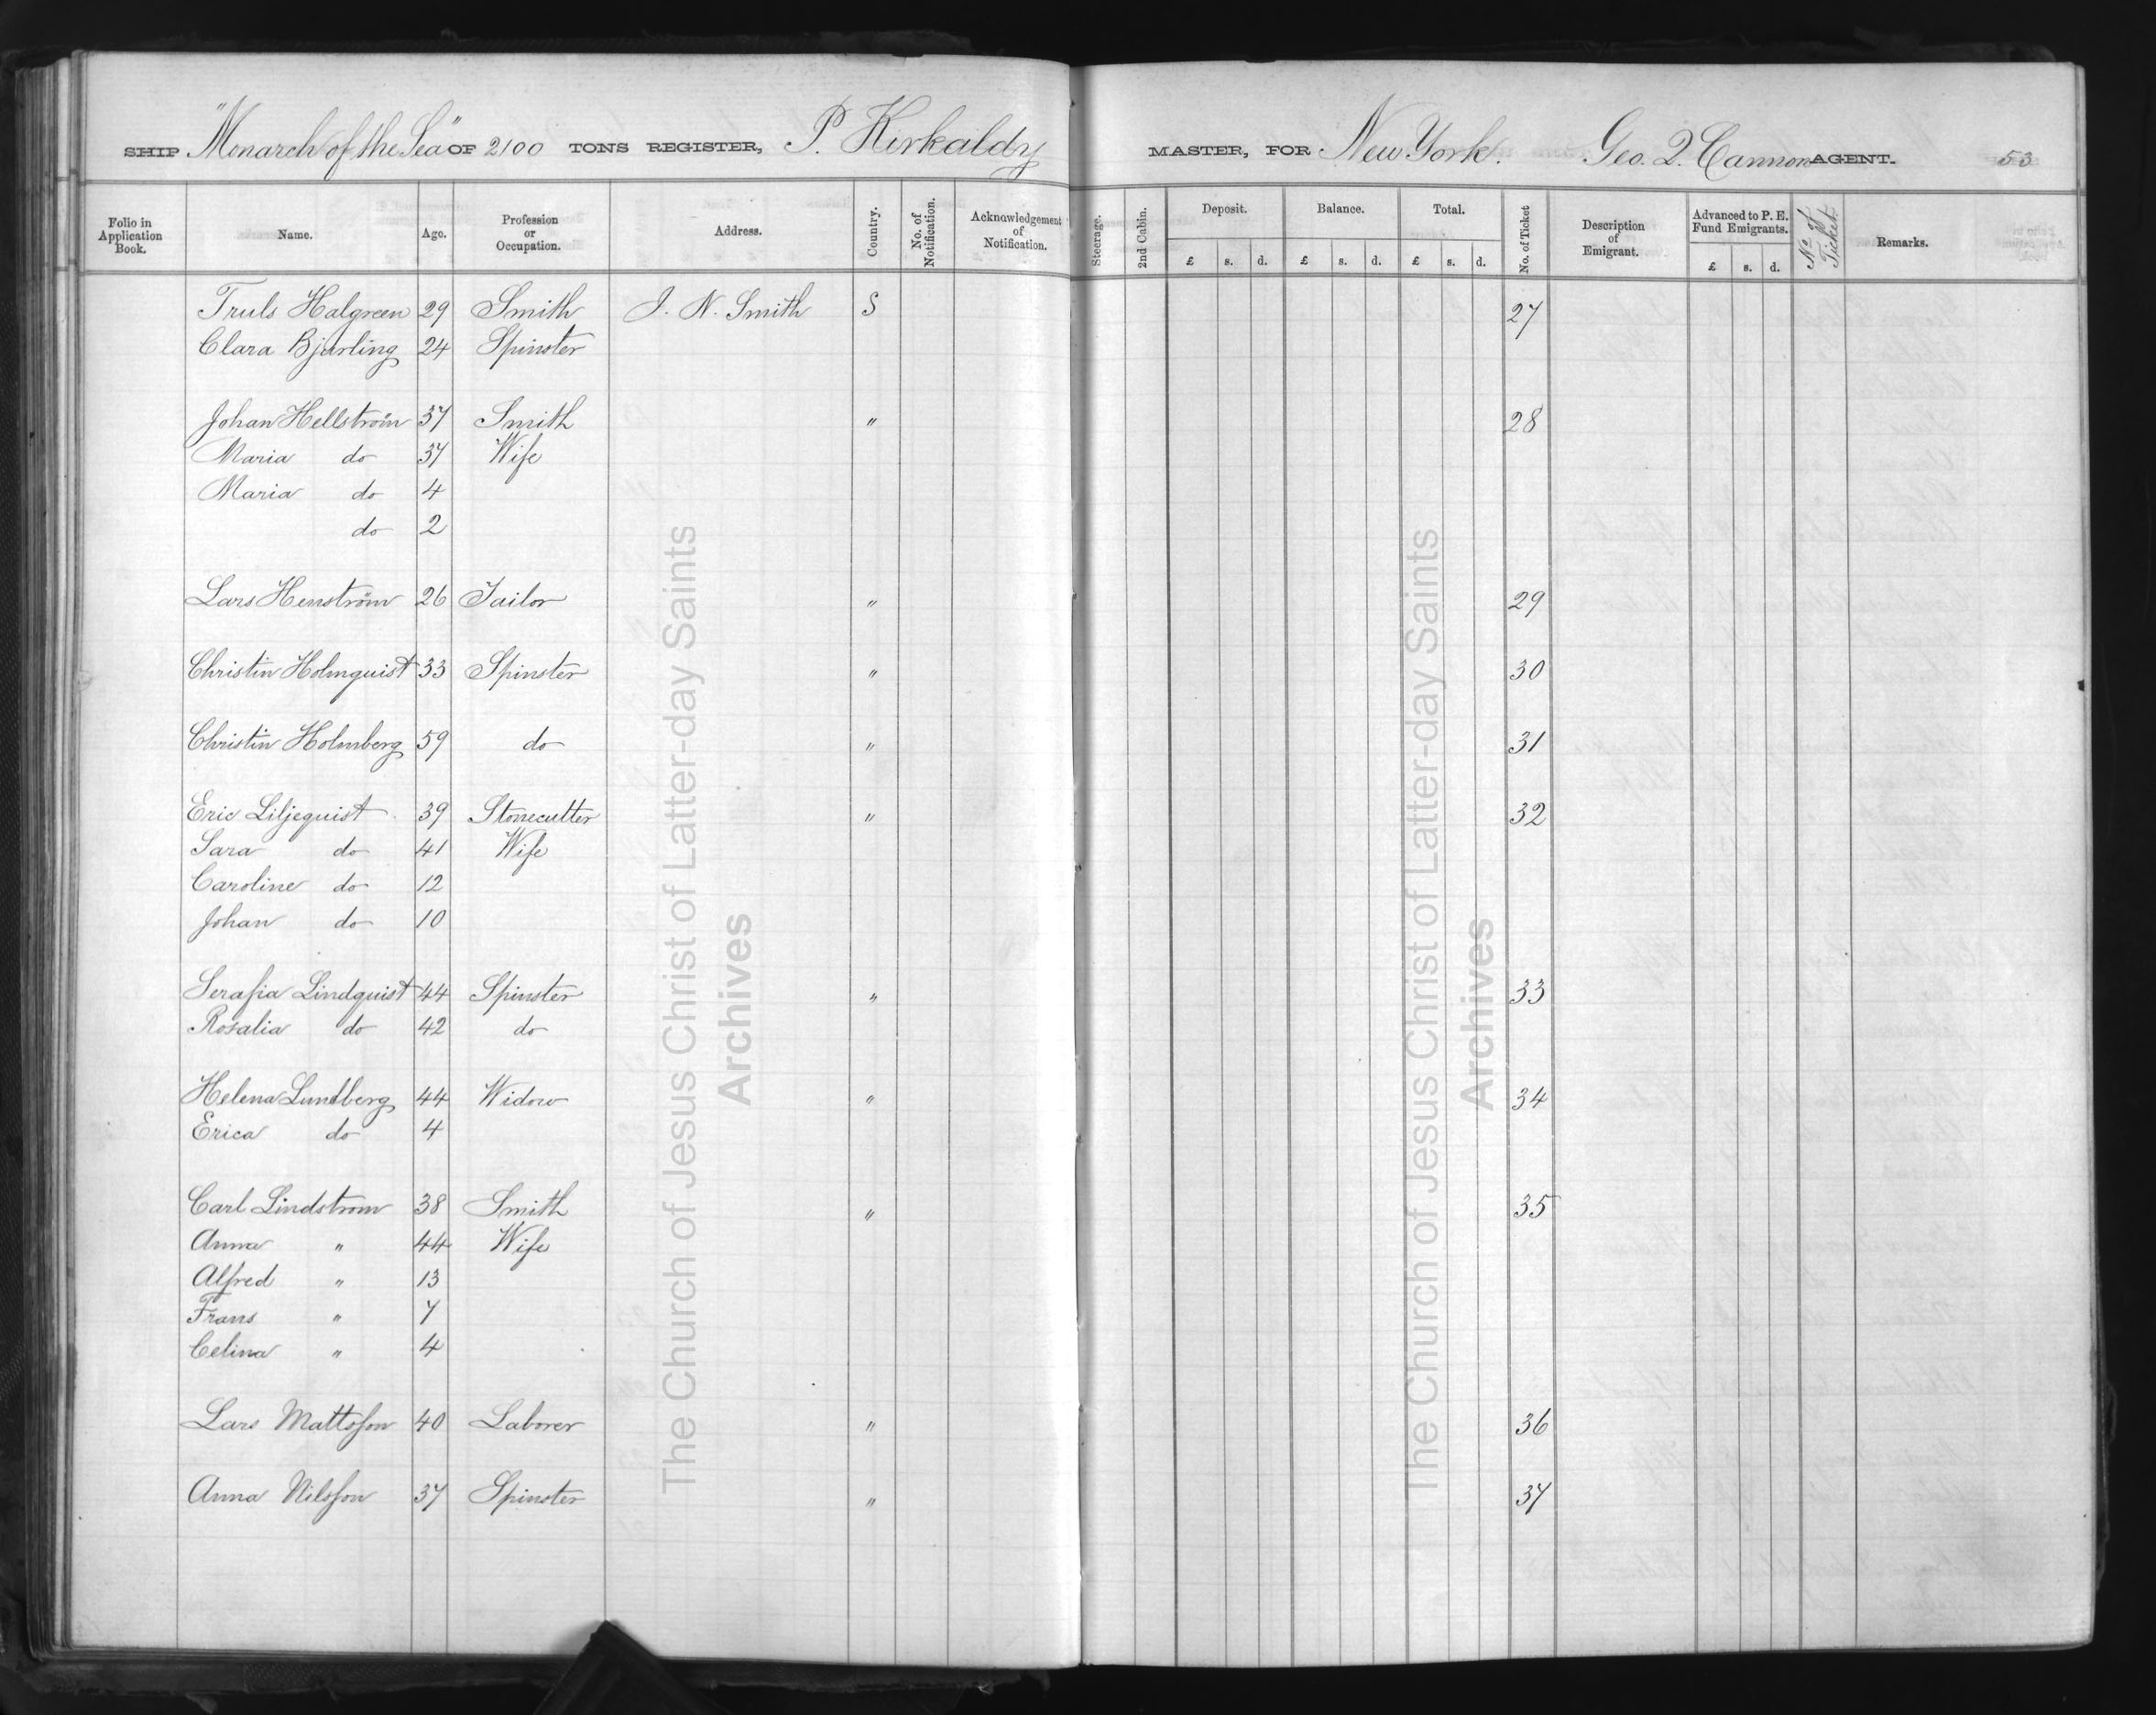 SHIP "Monarch of the Sea" OF 2100 TONS REGISTER, P. Kirkaldy MASTER, FOR New York. Geo. Q. Cannon AGENT. 53
Folio in Application Book. Name. Age. Profession or Occupation. Address. Country. No. of Notification. Acknowledgement of Notification. Steerage. 2nd Cabin. Deposit. Balance. Total. No. of Ticket Description of Emigrant. Advanced to P. E. Fund Emigrants. No. of Ticket. Remarks.
£ s. d. £ s. d. £ s. d. £ s. d.
Truls Halgreen 29 Smith J. N. Smith S 27
Clara Bjurling 24 Spinster
Johan Hellström 37 Smith " 28
Maria do 37 Wife
Maria do 4
do 2
Lars Henström 26 Tailor " 29
Christin Holmquist 33 Spinster " 30
Christin Holmberg 59 do " 31
Eric Liljequist 39 Stonecutter " 32
Sara do 41 Wife
Caroline do 12
Johan do 10
Serafia Lindquist 44 Spinster " 33
Rosalia do 42 do
Helena Lundberg 44 Widow " 34
Erica do 4
Carl Lindstrom 38 Smith " 35
Anna " 44 Wife
Alfred " 13
Frans " 7
Celina " 4
Lars Mattsson 40 Laborer " 36
Anna Nilsson 37 Spinster " 37
The Church of Jesus Christ of Latter-day Saints
Archives
The Church of Jesus Christ of Latter-day Saints
Archives